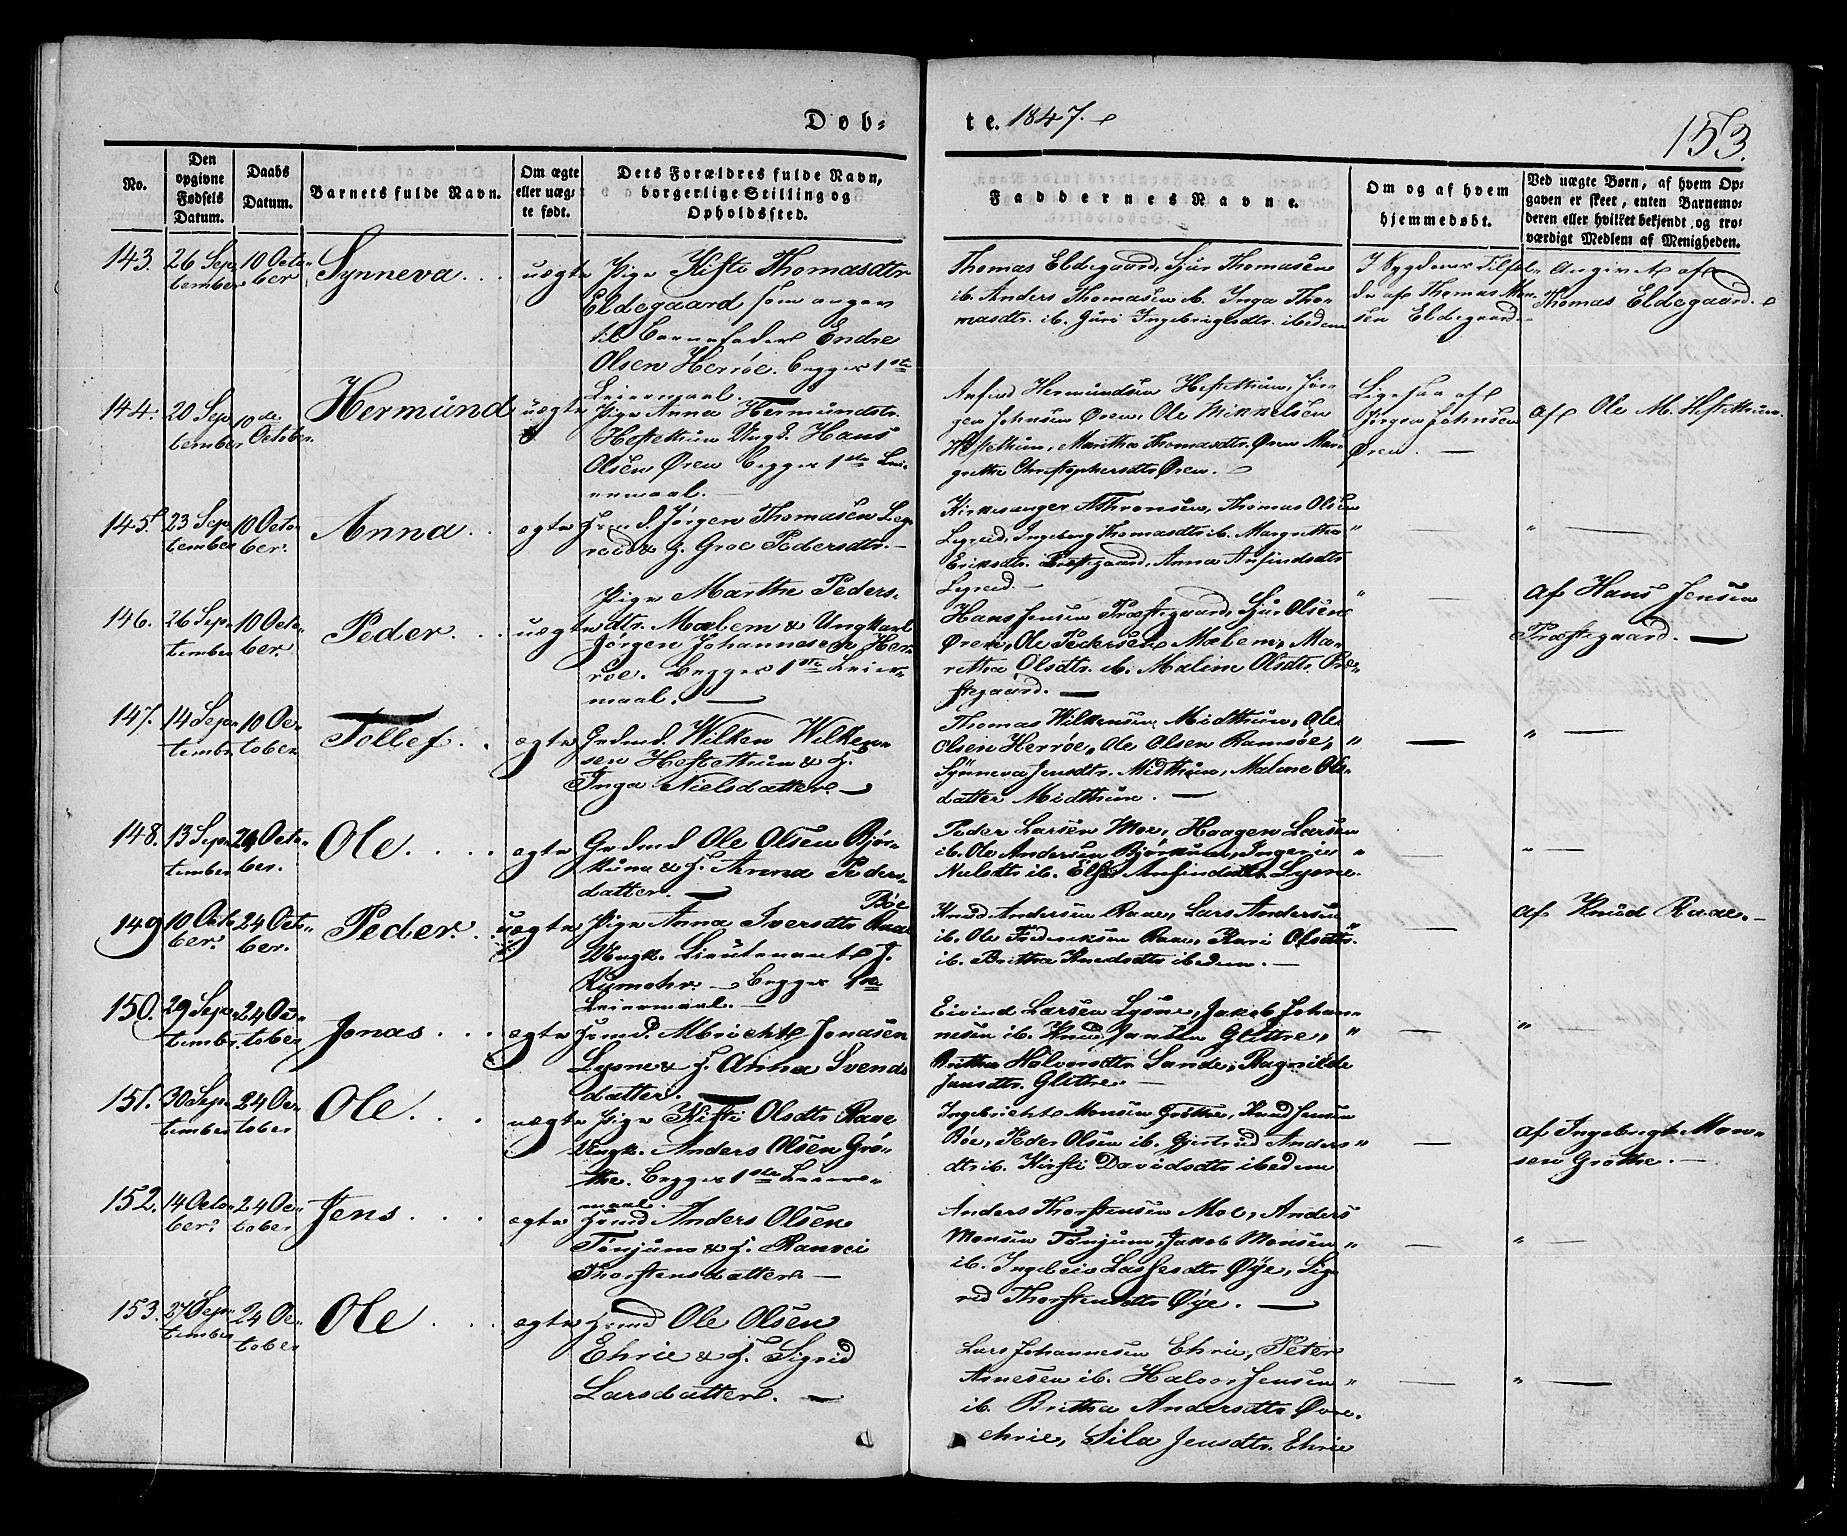 Døb-
te. 1847.
153.
No.
Den opgivne Fødsels Datum.
Daabs Datum.
Barnets fulde Navn.
Om ægte eller uægte født.
Dets Forældres fulde Navn, borgerlige Stilling og Opholdssted.
Faddernes Navne.
Om og af hvem hjemmedøbt.
Ved uægte Børn, af hvem Opgaven er skeet, enten Barnemoderen eller hvilket bekjendt og troværdigt Medlem af Menigheden.
143. 26 Sep- 10 Octo-
tember ber
Synneva
uægte
Pige Kisti Thomasdtr
Eldegaard som angav
til Barnefader Endre
Olsen Herrøe. begges 1ste
Leiermaal.
Thomas Eldegaard, Sjur Thomasen
ib. Anders Thomasen ib. Inga Tho-
masdtr. ib. Guri Ingebrigtsdtr. ibedem
I Bygdener Tilfæl-
de af Thomas Mon-
sen Eldegaard.
Angivet af
Thomas Eldegaard.
144. 20 Sep- 10de
tember October.
Hermund
uægte
Pige Anna Hermundsdtr.
Hestethun Ungk. Hans
Olsen Øren begges 1ste Lei-
ermaal.
Anfind Hermundsen Hestethun, Jør-
gen Johnsen Øren, Ole Mikkelsen
Hestethun, Maritha Thomasdtr. Øren Mar-
grethe Christophersdtr Øren.
Ligesaa af
Jørgen Johnsen
Øren. —
af Ole M. Hestethun.
145. 23 Sep- 10 Octo-
tember ber.
Anna
ægte
Huusmd. Jørgen Thomasen Leg-
reid & H. Groe Pedersdtr. —
Kirkesanger A Thronsen, Thomas Olsen
Legreid, Ingeborg Thomasdtr ib. Margretha
Eriksdtr. Præstegaard, Anna Anfindsdtr
Legreid. —
" — " —
146. 26 Sep- 10 Octo-
tember ber.
Peder
uægte
Pige Marthe Peders-
dtr. Mælem & Ungkarl
Jørgen Johannesen Her-
røe. begges 1ste Leier-
maal. —
Hans Jensen Præstegaard, Sjur Olsen
Øren, Ole Pedersen Mælem, Ma-
ritha Olsdtr. ib. Maline Olsdtr. Præ-
stegaard. —
" —
af Hans Jensen
Præstegaard. —
147. 14 Sep- 10 Oc-
tember tober
Tollef
ægte
Grdmd Wilken Wilken-
sen Hestethun & H.
Inga Nielsdatter. —
Thomas Wilkensen Midthun, Ole
Olsen Herrøe, Ole Olsen Ramsøe,
Synneva Jensdtr. Midthun, Maline Ols-
datter Midthun. —
" — " —
148. 13 Sep- 24 Octo-
tember ber.
Ole
ægte
Grdmd Ole Olsen Bjør-
kum & H. Anna Peders-
datter. —
Peder Larsen Moe, Haagen Larsen
ib. Ole Andersen Bjørkum, Ingerie
Nielsdtr ib. Else Anfindsdtr Lysne.
" — " —
149 10 Octo- 24 Octo-
ber. ber.
Peder
uægte
Bøe
Pige Anna Iversdtr Raae
Ungk. Lieutenant J.
Rumohr — begges 1ste
Leiermaal. —
Knud Andersen Raae, Lars Andersen
ib. Ole Frederiksen Raae, Kari Olsdtr.
ib. Britha Knudsdtr ibedem. —
" —
af Knud Raae. —
150. 29 Sep- 24 Oc-
tember. tober
Jonas
ægte
Huusmd. Albrickt Jonasen
Lysne & H. Anna Svends-
datter. —
Eivind Larsen Lysne, Jakob Johan-
nesen ib. Knud Jansen Glittre,
Brithe Halvorsdtr Sande, Ragnilde
Jensdtr. Glittre. —
" — " —
151. 30 Sep- 24 Oc-
tember tober
Ole
uægte
Pige Kisti Olsdtr Raae
Ungk. Anders Olsen Grø-
the. begges 1ste Leier-
maal.
Ingebricht Monsen Grøthe, Knud Jensen
Bøe, Peder Olsen ib. Gjertrud Anders-
dtr ib. Kirsti Davidsdtr ibedem
" —
af Ingebrigt Mon-
sen Grøthe. —
152. 14 Octo- 24 Oc-
ber. tober
Jens
ægte
Huusmd Anders Olsen
Tønjum & H. Ranvei
Thorstensdatter. —
Anders Thorstensen Moe, Anders
Monsen Tønjum, Jakob Monsen
ib. Ingebor Lassesdtr Øye, Sig-
rid Thorstensdtr Øye. —
" — " —
153. 27 Sep- 24 Oc-
tember tober
Ole
ægte
Huusmd Ole Olsen
Ehrie & H. Sigrid
Larsdatter. —
Lars Johannesen Ehrie, Peter
Arnesen ib. Halvor Jensen
ib. Britha Andersdtr Øvre-
ehrie, Sila Jensdtr. Ehrie
" — " —